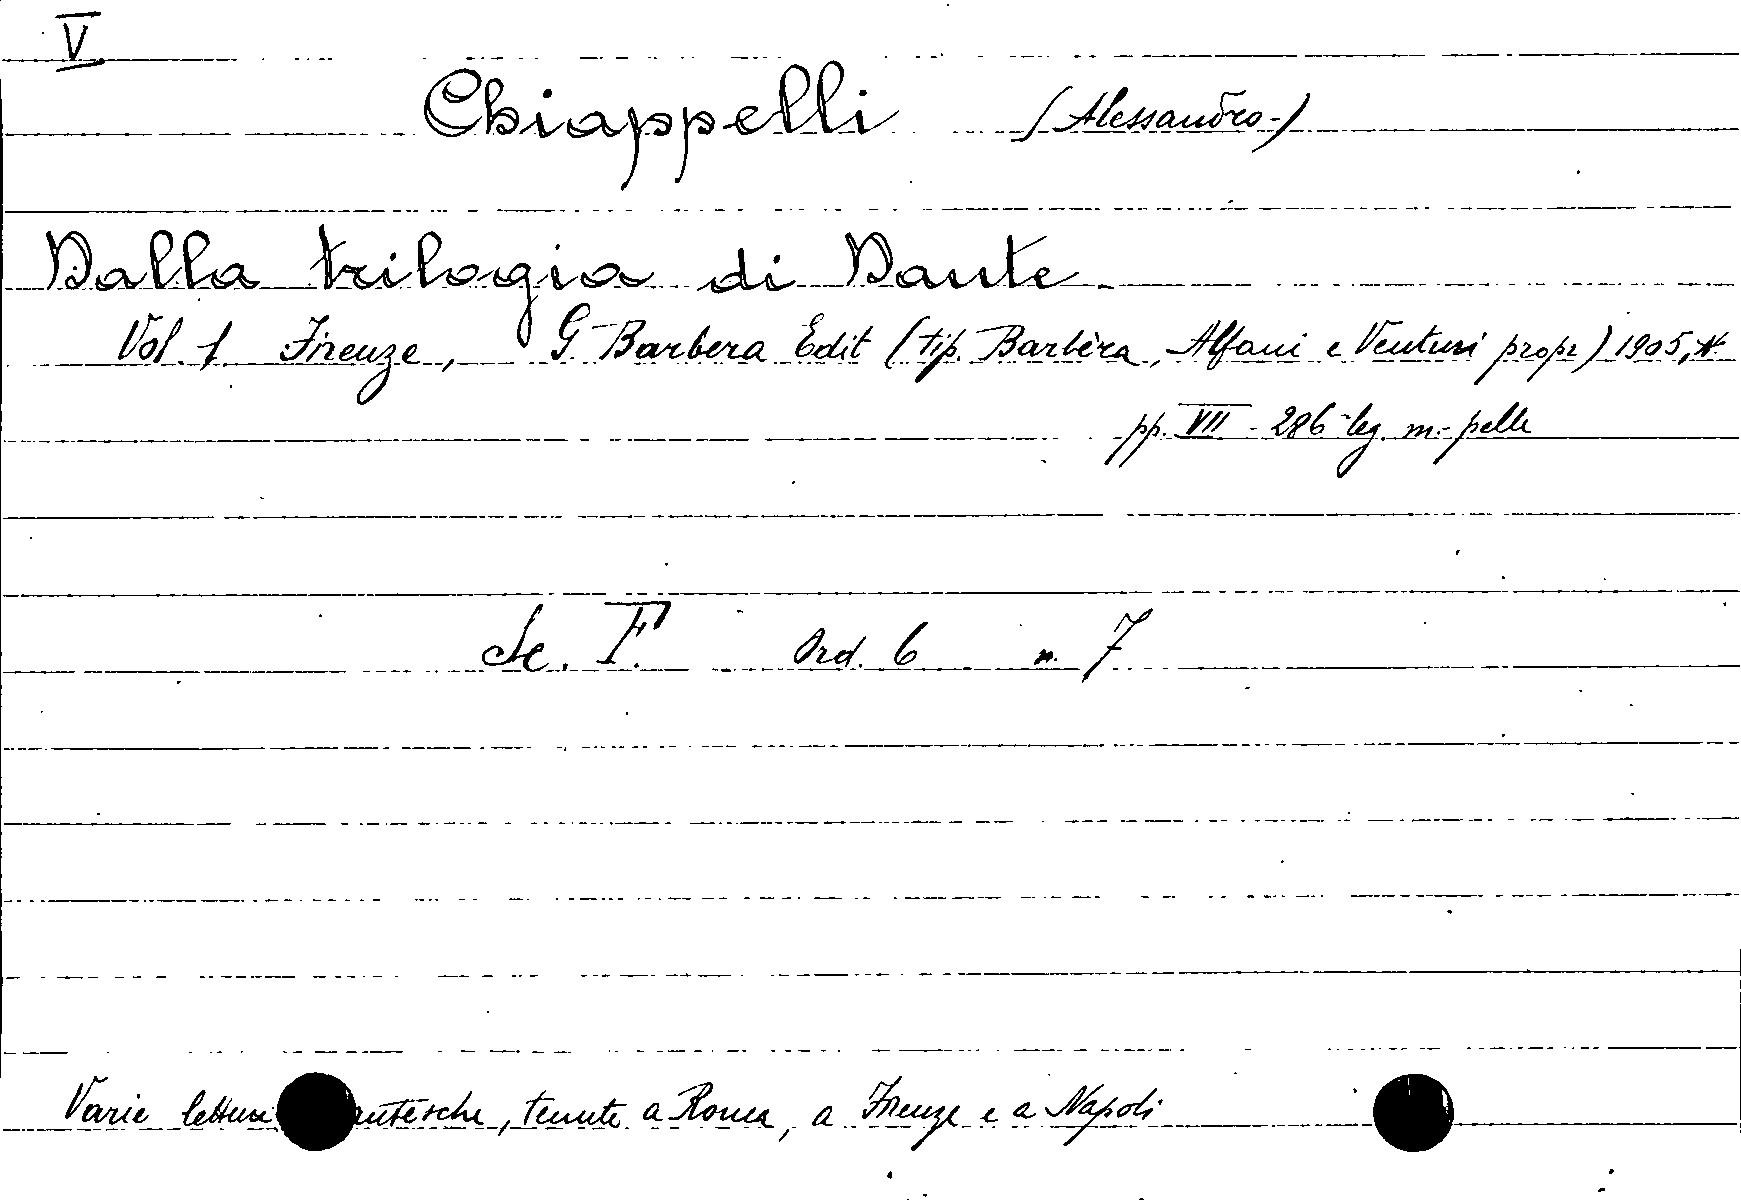 V
Chiappelli (Alessandro-)
Dalla trilogia di Dante -
Vol. 1. Firenze, G Barbera Edit (tip. Barbèra, Alfani e Venturi propr) 1905,
pp. VII - 286 leg. m. pelle
Sc. F. Ord. 6 n. 7
Varie letture antesche, tenute a Roma, a Firenze e a Napoli